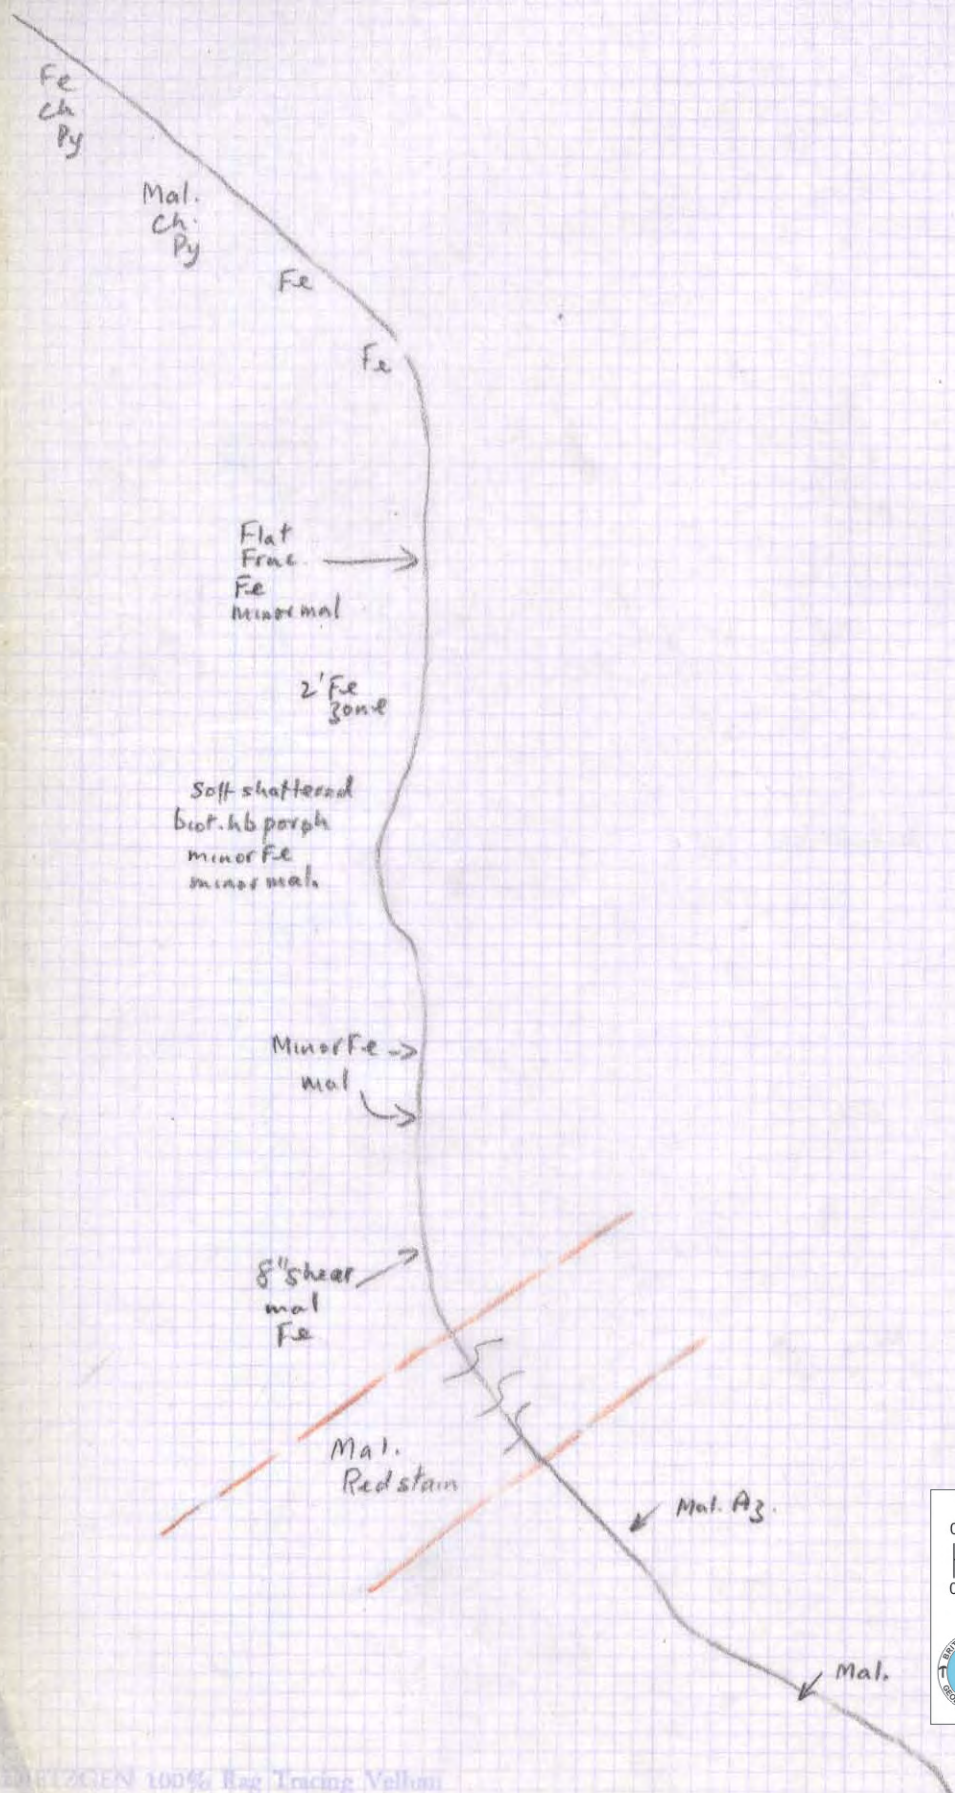 Fe
Ch
Py
Mal.
Ch.
Py
Fe
Fe
Flat
Frac.
Fe
minor mal
2' Fe
zone
Soft shattered
biot. hb porph
minor Fe
minor mal.
Minor Fe
mal
8" shear
mal
Fe
Mal.
Red stain
Mal. Az.
Mal.
100% Rag Tracing Vellum